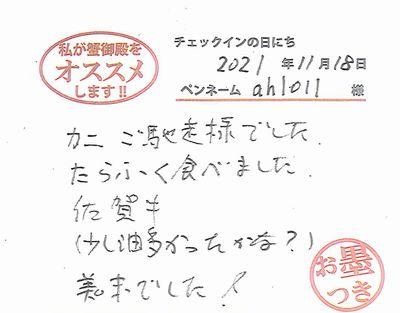 私が蟹御殿を
オススメ
します!!
チェックインの日にち
2021年11月18日
ペンネーム ahlo11 様
カニ ご馳走様でした.
たらふく食べました.
佐賀牛
(少し油多かったかな?)
美味でした!
お墨
つき